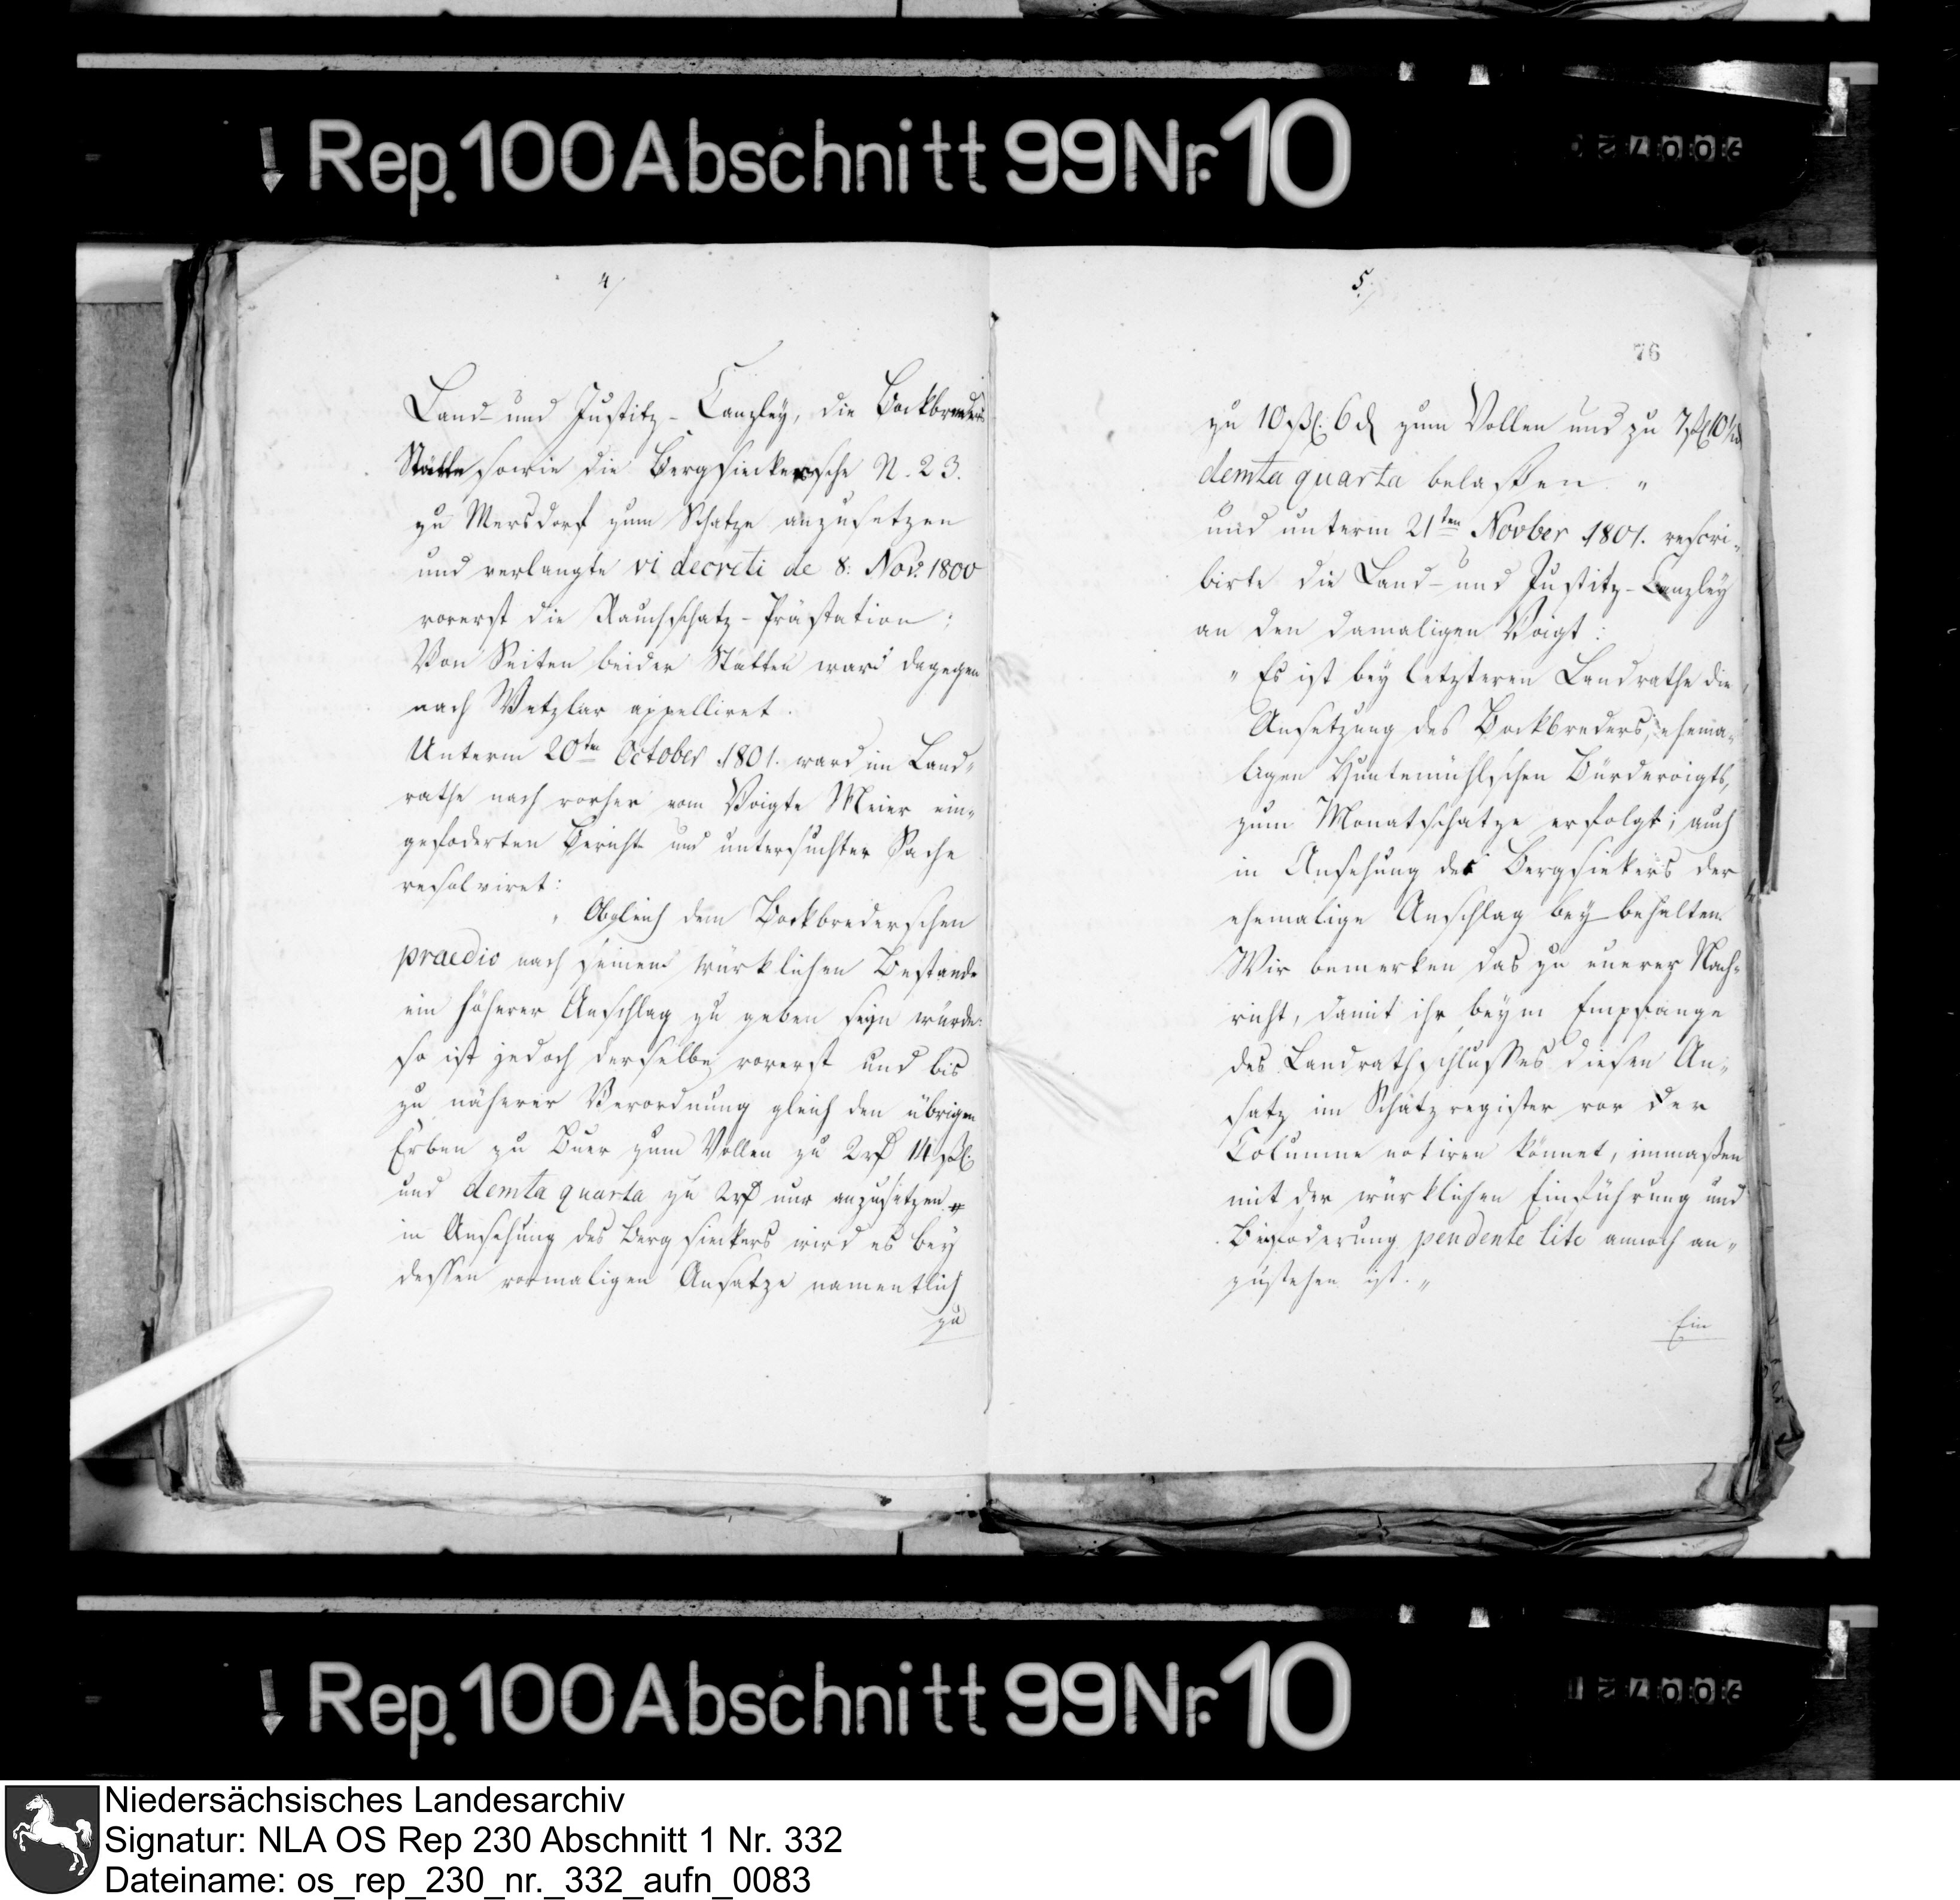 Rep. 100 Abschnitt 99 Nr. 10
4/
Land- und Justitz-Canzley, die Bockbreders
Stätte sowie die Bergsieckersche N. 23.
zu Mersdorf zum Schatze anzusetzen
und verlangte vi decreti de 8. Nov. 1800
vorerst die Rauchschatz-Prästation;
Von Seiten beider Stätten ward dagegen
nach Wetzlar appelliret.
Unterm 20ten October 1801. ward im Land-
rathe nach vorher vom Voigte Meier ein-
gefoderten Bericht und untersuchter Sache
resolviret:
„Obgleich dem Bockbrederschen
praedio nach seinem würklichen Bestande
ein höherer Anschlag zu geben seyn würde:
so ist jedoch derselbe vorerst und bis
zu näherer Verordnung gleich den übrigen
Erben zu Buer zum Vollen zu 2 rß 14 ßl.
und demta quarta zu 2 rß nur anzusetzen
in Ansehung des Bergsiekers wird es bey
dessen vormaligen Ansatze namentlich
zu
5/
76
zu 10 ßl. 6 d zum Vollen und zu 7 ßl 10½ d
demta quarta belaßen „
und unterm 21ten Novber 1801. rescri-
birte die Land- und Justitz-Canzley
an den damaligen Voigt:
„Es ist bey letzteren Landrathe die
Ansetzung des Bockbreders, ehema-
ligen Huntemühlschen Burdevoigts,
zum Monatschatze erfolgt; auch
in Ansehung des Bergsiekers der
ehemalige Anschlag bey behalten
Wir bemerken das zu euerer Nach-
richt, damit ihr beym Empfange
des Landrathschlusses diesen An-
satz im Schatzregister vor der
Columne notiren könnet, immaßen
mit der würklichen Einführung und
Beyfoderung pendente lite annoch an-
zustehen ist. „
Ein
Rep. 100 Abschnitt 99 Nr. 10
Niedersächsisches Landesarchiv
Signatur: NLA OS Rep 230 Abschnitt 1 Nr. 332
Dateiname: os_rep_230_nr._332_aufn_0083